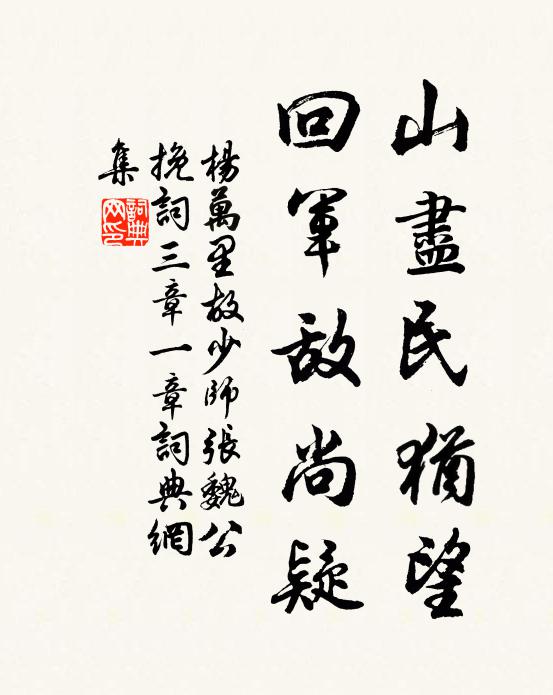 山盡民猶望
回軍敌尚疑
楊萬里故少師張魏公
挽詞三章一章詞典網
集
詞典
网印